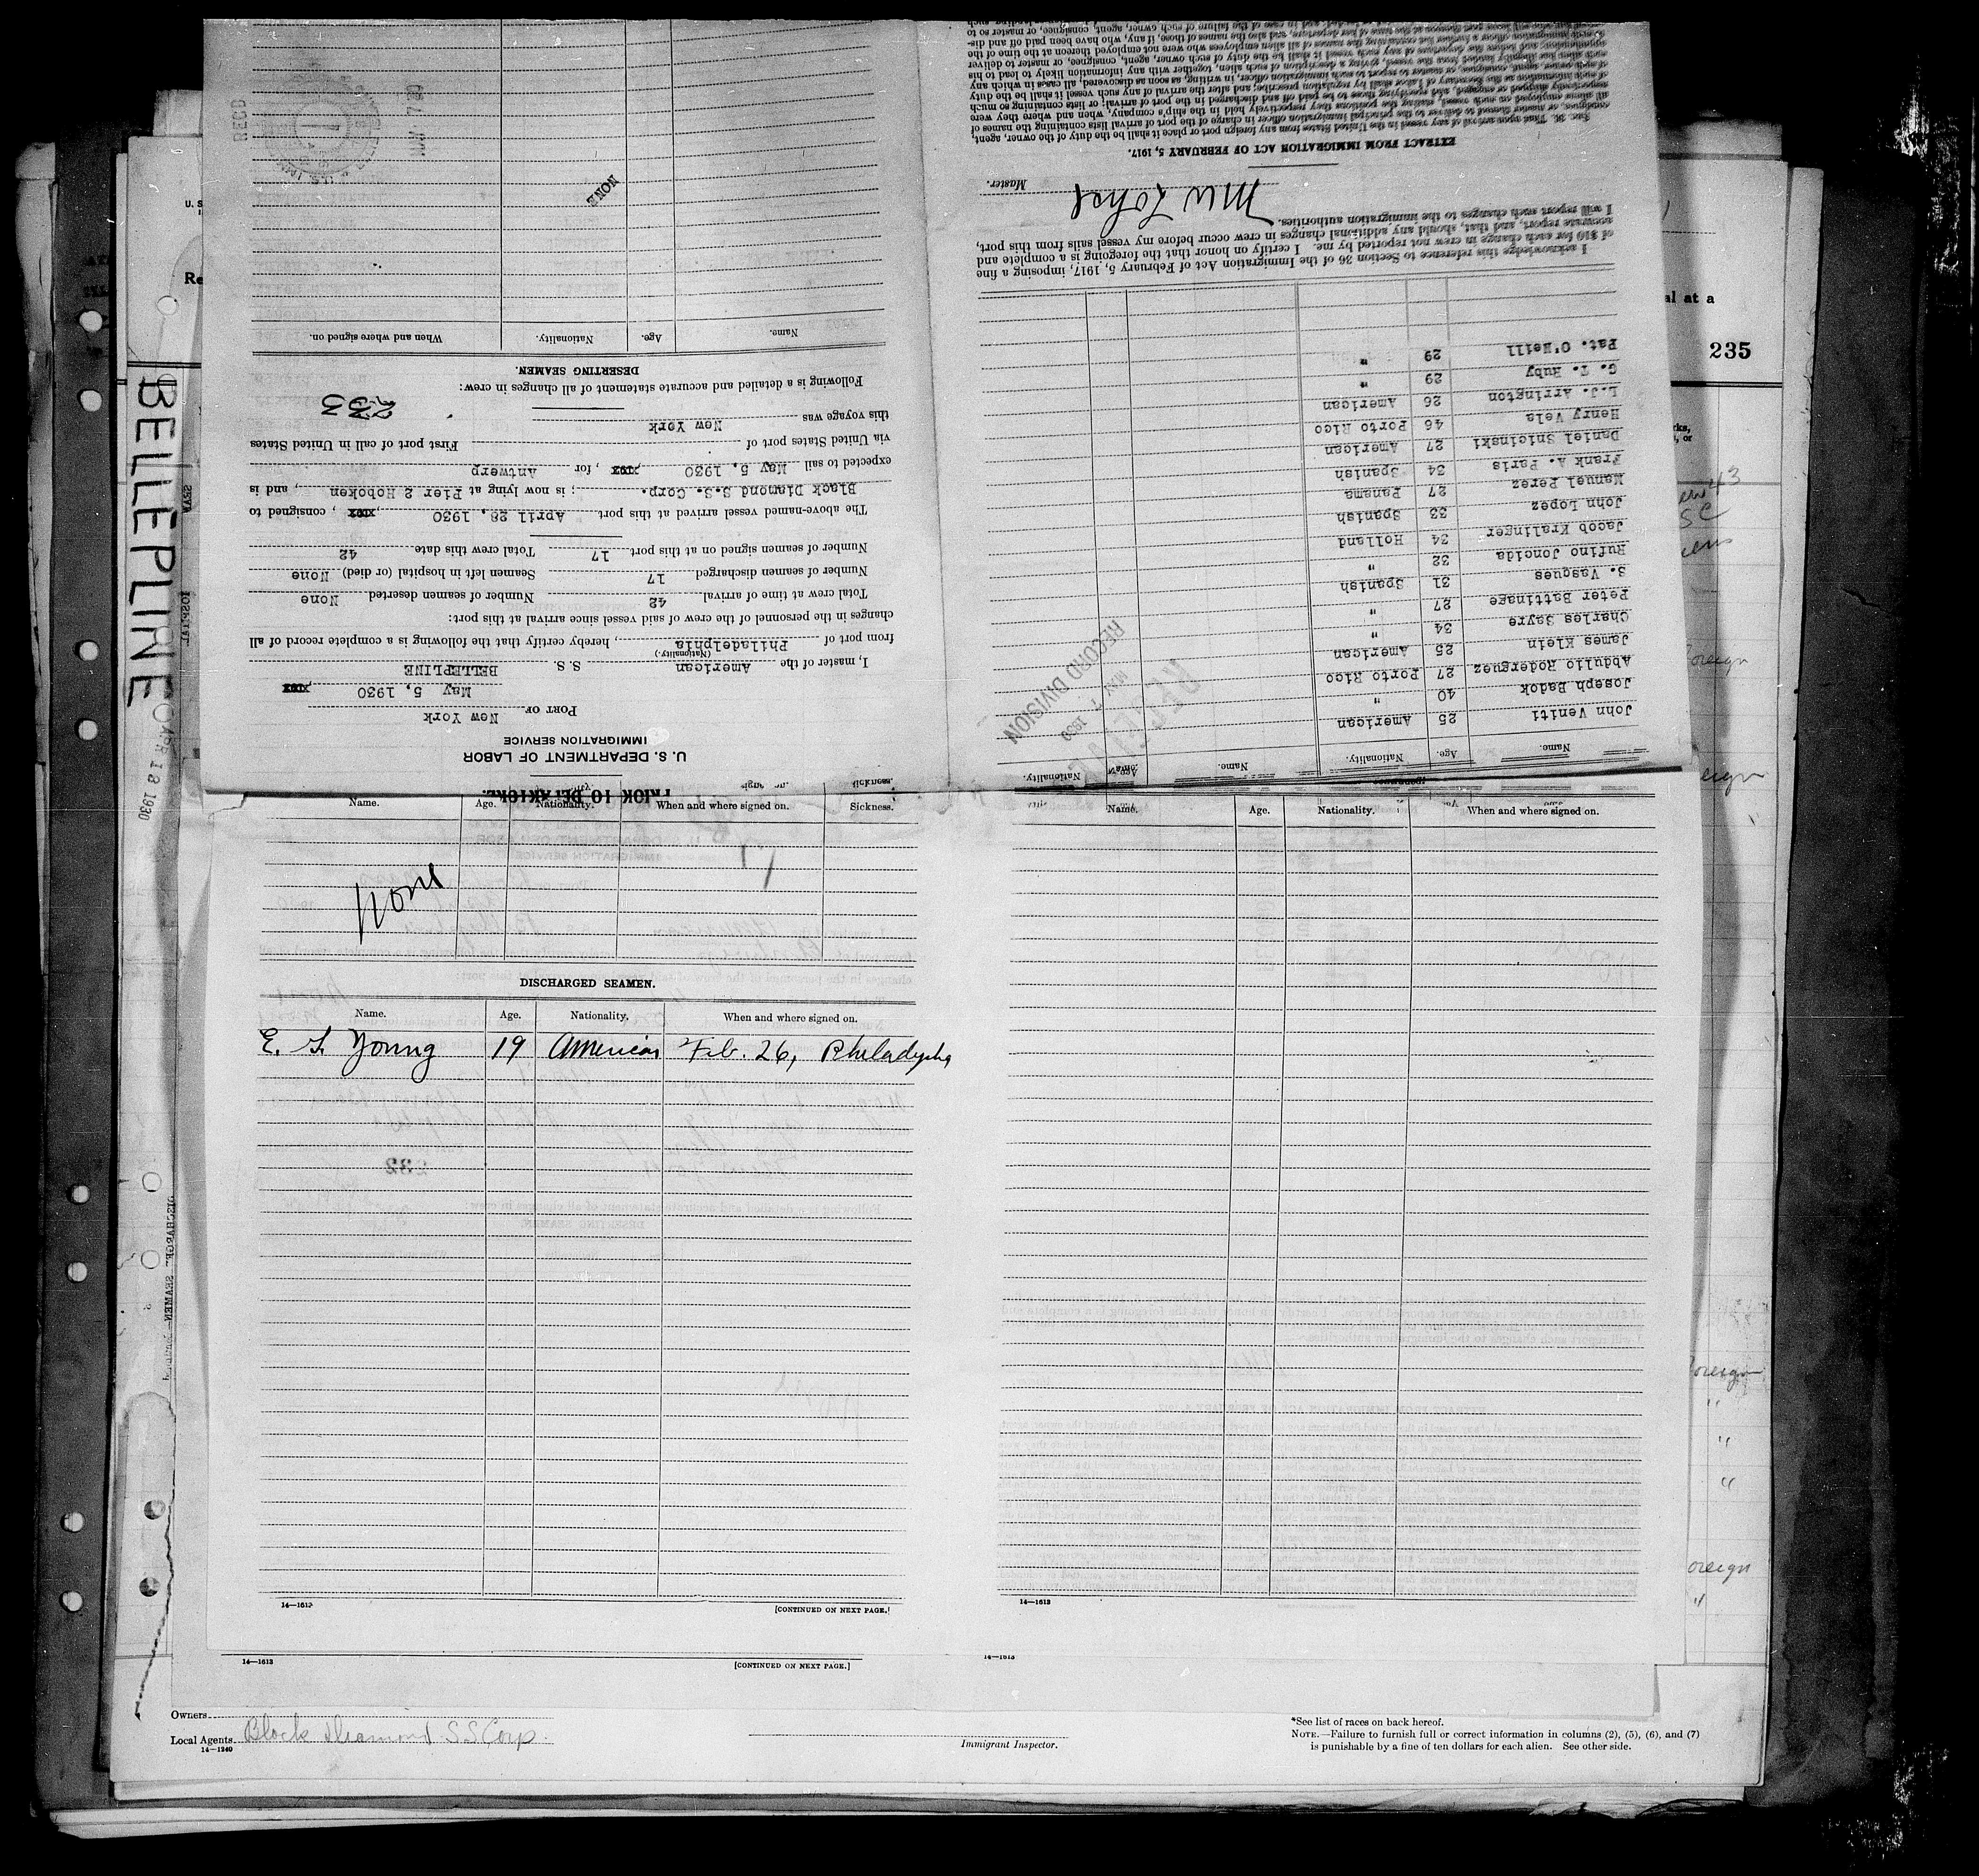 U. S. DEPARTMENT OF LABOR
IMMIGRATION SERVICE
PORT OF New York
May 5, 1930
I, master of the American S. S. BELLEPLINE
(Nationality.)
from port of Philadelphia, hereby certify that the following is a complete record of all
changes in the personnel of the crew of said vessel since arrival at this port:
Total crew at time of arrival 42 Number of seamen deserted None
Number of seamen discharged 17 Seamen left in hospital (or died) None
Number of seamen signed on at this port 17 Total crew this date 42
The above-named vessel arrived at this port April 28, 1930, consigned to
Black Diamond S.S. Corp. ; is now lying at Pier 2 Hoboken, and is
expected to sail May 5, 1930, for Antwerp
via United States port of First port of call in United States
this voyage was New York
233
Following is a detailed and accurate statement of all changes in crew:
DESERTING SEAMEN.
Name. Age. Nationality. When and where signed on.
NONE
REC'D
Name. Age. Nationality. Name. Age Nationality.
John Veniti 25 American
Joseph Badok 40 "
Abdulio Roderguz 27 Porto Rico
James Klein 25 American
Charles Sayre 34 "
Peter Battinage 27 "
S. Vasques 31 Spanish
Rufino Joncida 32 "
Jacob Kralinger 34 Holland
John Lopez 33 Spanish
Manuel Perez 27 Panama
Frank A. Paris 34 Spanish
Daniel Snicinski 27 American
Henry Vela 46 Porto Rico
L.J. Arrington 26 American
C. T. Ruby 29 "
Pat. O'Neill 29 "
RECEIVED
MAY 7 1930
RECORD DIVISION
I acknowledge this reference to Section 36 of the Immigration Act of February 5, 1917, imposing a fine
of $10 for each change in crew not reported by me. I certify on honor that the foregoing is a complete and
accurate report, and that, should any additional changes in crew occur before my vessel sails from this port,
I will report such changes to the immigration authorities.
Master.
EXTRACT FROM IMMIGRATION ACT OF FEBRUARY 5, 1917.
SEC. 36. That upon arrival of any vessel in the United States from any foreign port or place it shall be the duty of the owner, agent,
consignee, or master thereof to deliver to the principal immigration officer in charge of the port of arrival lists containing the names of
all aliens employed on such vessel, stating the positions they respectively hold in the ship's company, when and where they were
respectively shipped or engaged, and specifying those to be paid off and discharged in the port of arrival; or lists containing so much
of such information as the Secretary of Labor shall by regulation prescribe; and after the arrival of any such vessel it shall be the duty
of such owner, agent, consignee, or master to report to such immigration officer, in writing, as soon as discovered, all cases in which any
BELLEPLINE
APR 18 1930
U. S
Re
al at a
235
PRIOR TO DEPARTURE.
Name. Age. Nationality. When and where signed on. Sickness.
None
DISCHARGED SEAMEN.
Name. Age. Nationality. When and where signed on.
E. S. Young 19 American Feb. 26, Philadelphia
14—1613 [CONTINUED ON NEXT PAGE.]
Name. Age. Nationality. When and where signed on.
14—1613
14—1613 [CONTINUED ON NEXT PAGE.]
14—1613
oreign
eign
oreign
"
"
"
oreign
"
Owners
Local Agents. Black Diamond S S Corp.
14—1240
Immigrant Inspector.
*See list of races on back hereof.
NOTE.—Failure to furnish full or correct information in columns (2), (5), (6), and (7)
is punishable by a fine of ten dollars for each alien. See other side.